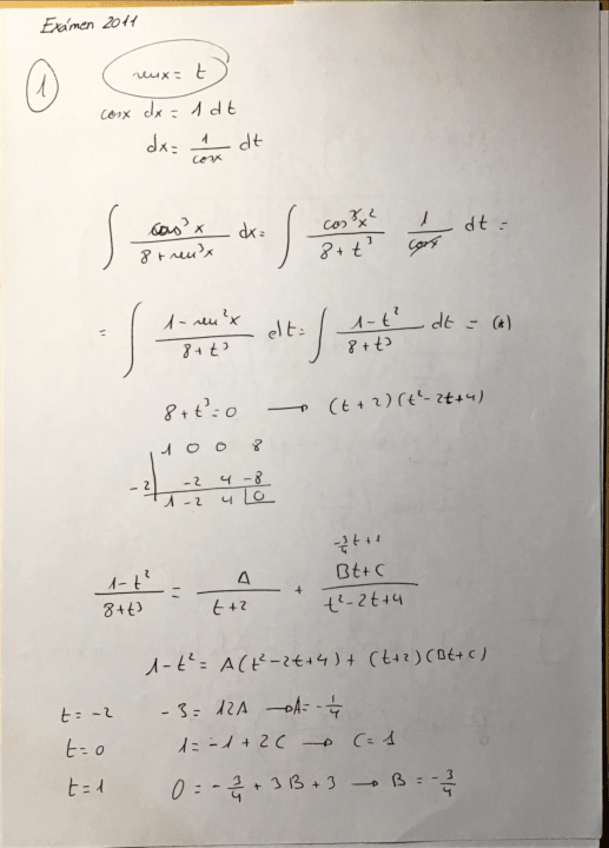 Exámen 2011
1
senx = t
cosx dx = 1 dt
dx = 1/cosx dt
∫ cos³x / (8 + sen³x) dx = ∫ cos³x² / (8 + t³) 1/cosx dt =
= ∫ (1 - sen²x) / (8 + t³) dt = ∫ (1 - t²) / (8 + t³) dt = (*)
8 + t³ = 0 → (t + 2)(t² - 2t + 4)
1 0 0 8
-2 | -2 4 -8
1 -2 4 | 0
-3/4 t + 1
(1 - t²) / (8 + t³) = A / (t + 2) + (Bt + C) / (t² - 2t + 4)
1 - t² = A(t² - 2t + 4) + (t + 2)(Bt + C)
t = -2 -3 = 12A → A = -1/4
t = 0 1 = -1 + 2C → C = 1
t = 1 0 = -3/4 + 3B + 3 → B = -3/4